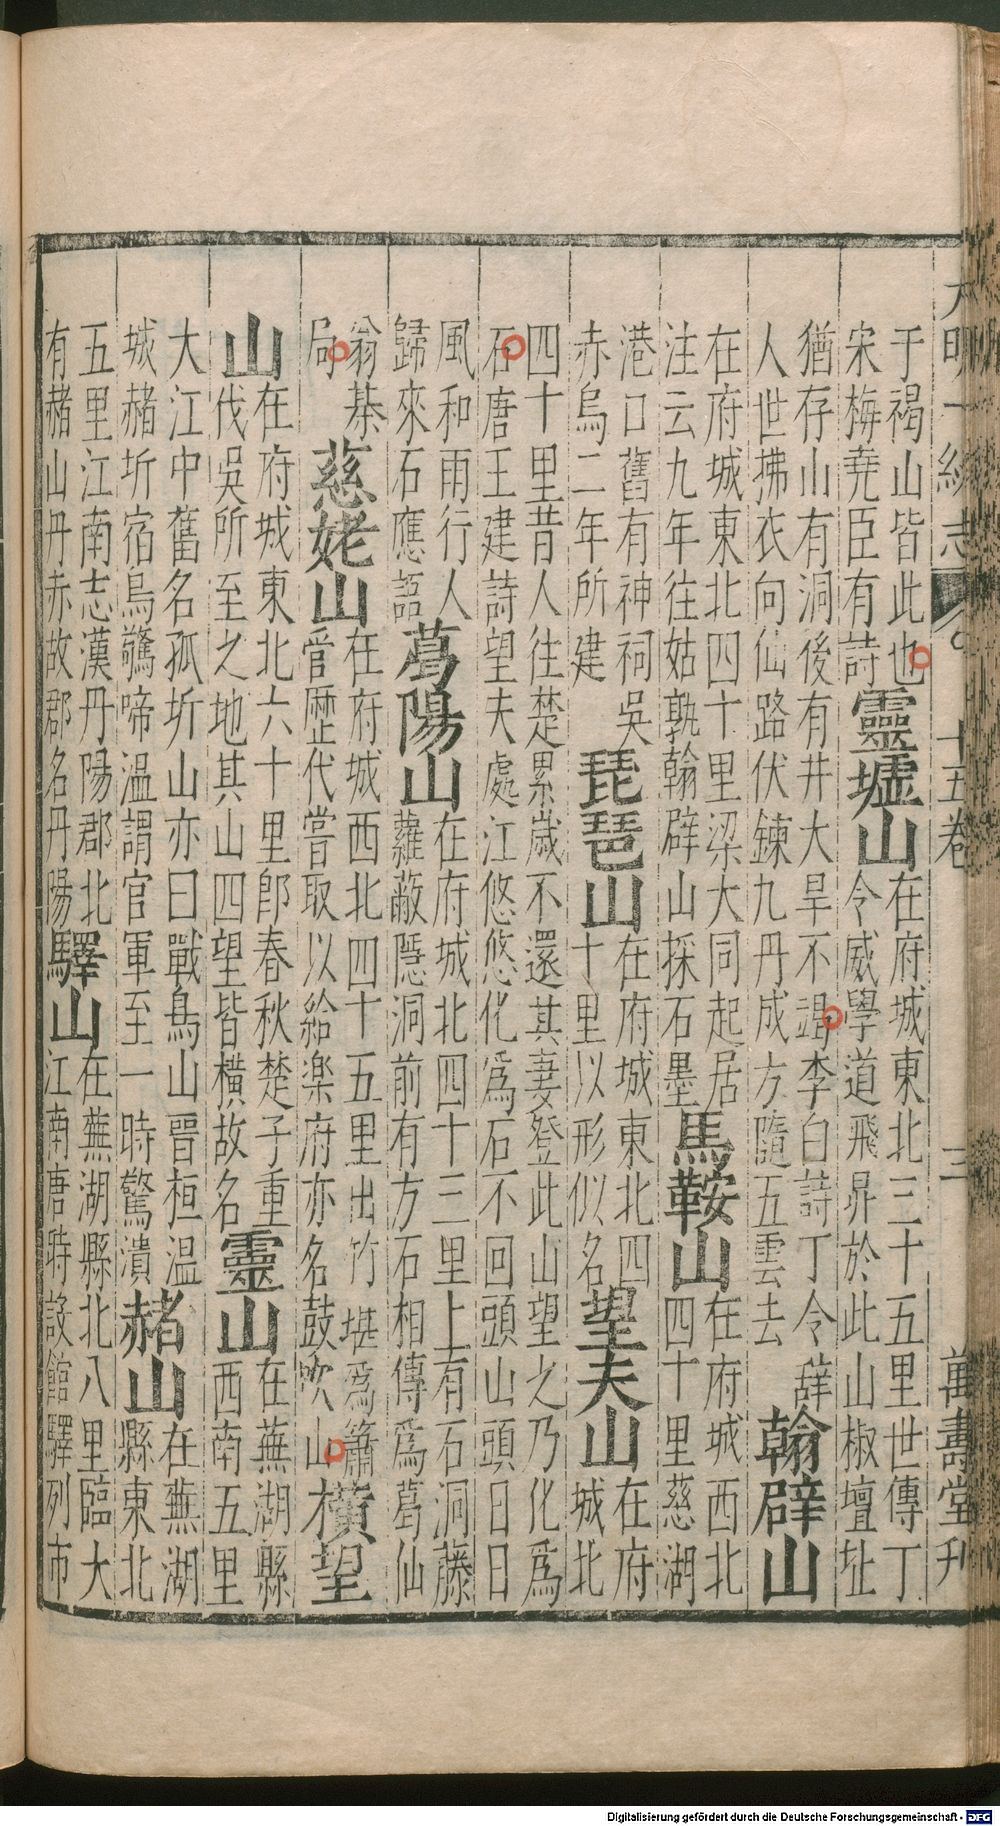 大明一統志 十五卷 三 萬壽堂刊
于褐山皆此也
宋梅堯臣有詩
靈墟山
在府城東北三十五里世傳丁
令威學道飛昇於此山椒壇址
猶存山有洞後有井大旱不竭李白詩丁令辭
人世拂衣向仙路伏鍊九丹成方隨五雲去
翰辟山
在府城東北四十里梁大同起居
注云九年往姑孰翰辟山採石墨
馬鞍山
在府城西北
四十里慈湖
港口舊有神祠吳
赤烏二年所建
琵琶山
在府城東北四
十里以形似名
望夫山
在府
城北
四十里昔人往楚累歲不還其妻登此山望之乃化爲
石唐王建詩望夫處江悠悠化爲石不回頭山頭日日
風和雨行人
歸來石應語
葛陽山
在府城北四十三里上有石洞藤
蘿蔽隱洞前有方石相傳爲葛仙
翁棊
局
慈姥山
在府城西北四十五里出竹堪爲簫
管歷代嘗取以給樂府亦名鼓吹山
橫望
山
在府城東北六十里即春秋楚子重
伐吳所至之地其山四望皆橫故名
靈山
在蕪湖縣
西南五里
大江中舊名孤圻山亦曰戰鳥山晉桓溫
城赭圻宿鳥驚啼溫謂官軍至一時驚潰
赭山
在蕪湖
縣東北
五里江南志漢丹陽郡北
有赭山丹赤故郡名丹陽
驛山
在蕪湖縣北八里臨大
江南唐時設館驛列市
Digitalisierung gefördert durch die Deutsche Forschungsgemeinschaft - DFG